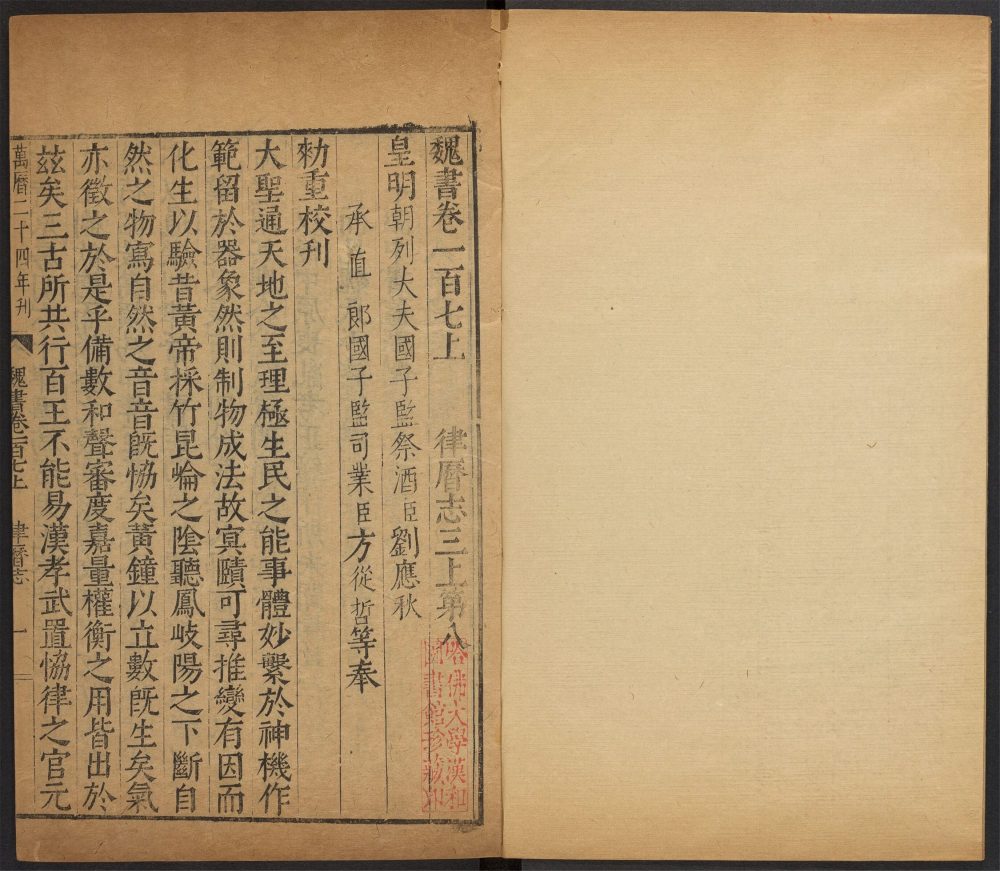 魏書卷一百七上 律曆志三上第八
皇明朝列大夫國子監祭酒臣劉應秋
承直郎國子監司業臣方從哲等奉
勑重校刊
大聖通天地之至理極生民之能事體妙繫於神機作
範留於器象然則制物成法故冥賾可尋推變有因而
化生以驗昔黃帝採竹昆崘之陰聽鳳岐陽之下斷自
然之物寫自然之音音旣恊矣黃鐘以立數旣生矣氣
亦徵之於是乎備數和聲審度嘉量權衡之用皆出於
玆矣三古所共行百王不能易漢孝武置恊律之官元
萬曆二十四年刊
魏書卷一百七上 律曆志 一
哈佛大學漢和
圖書館珍藏印